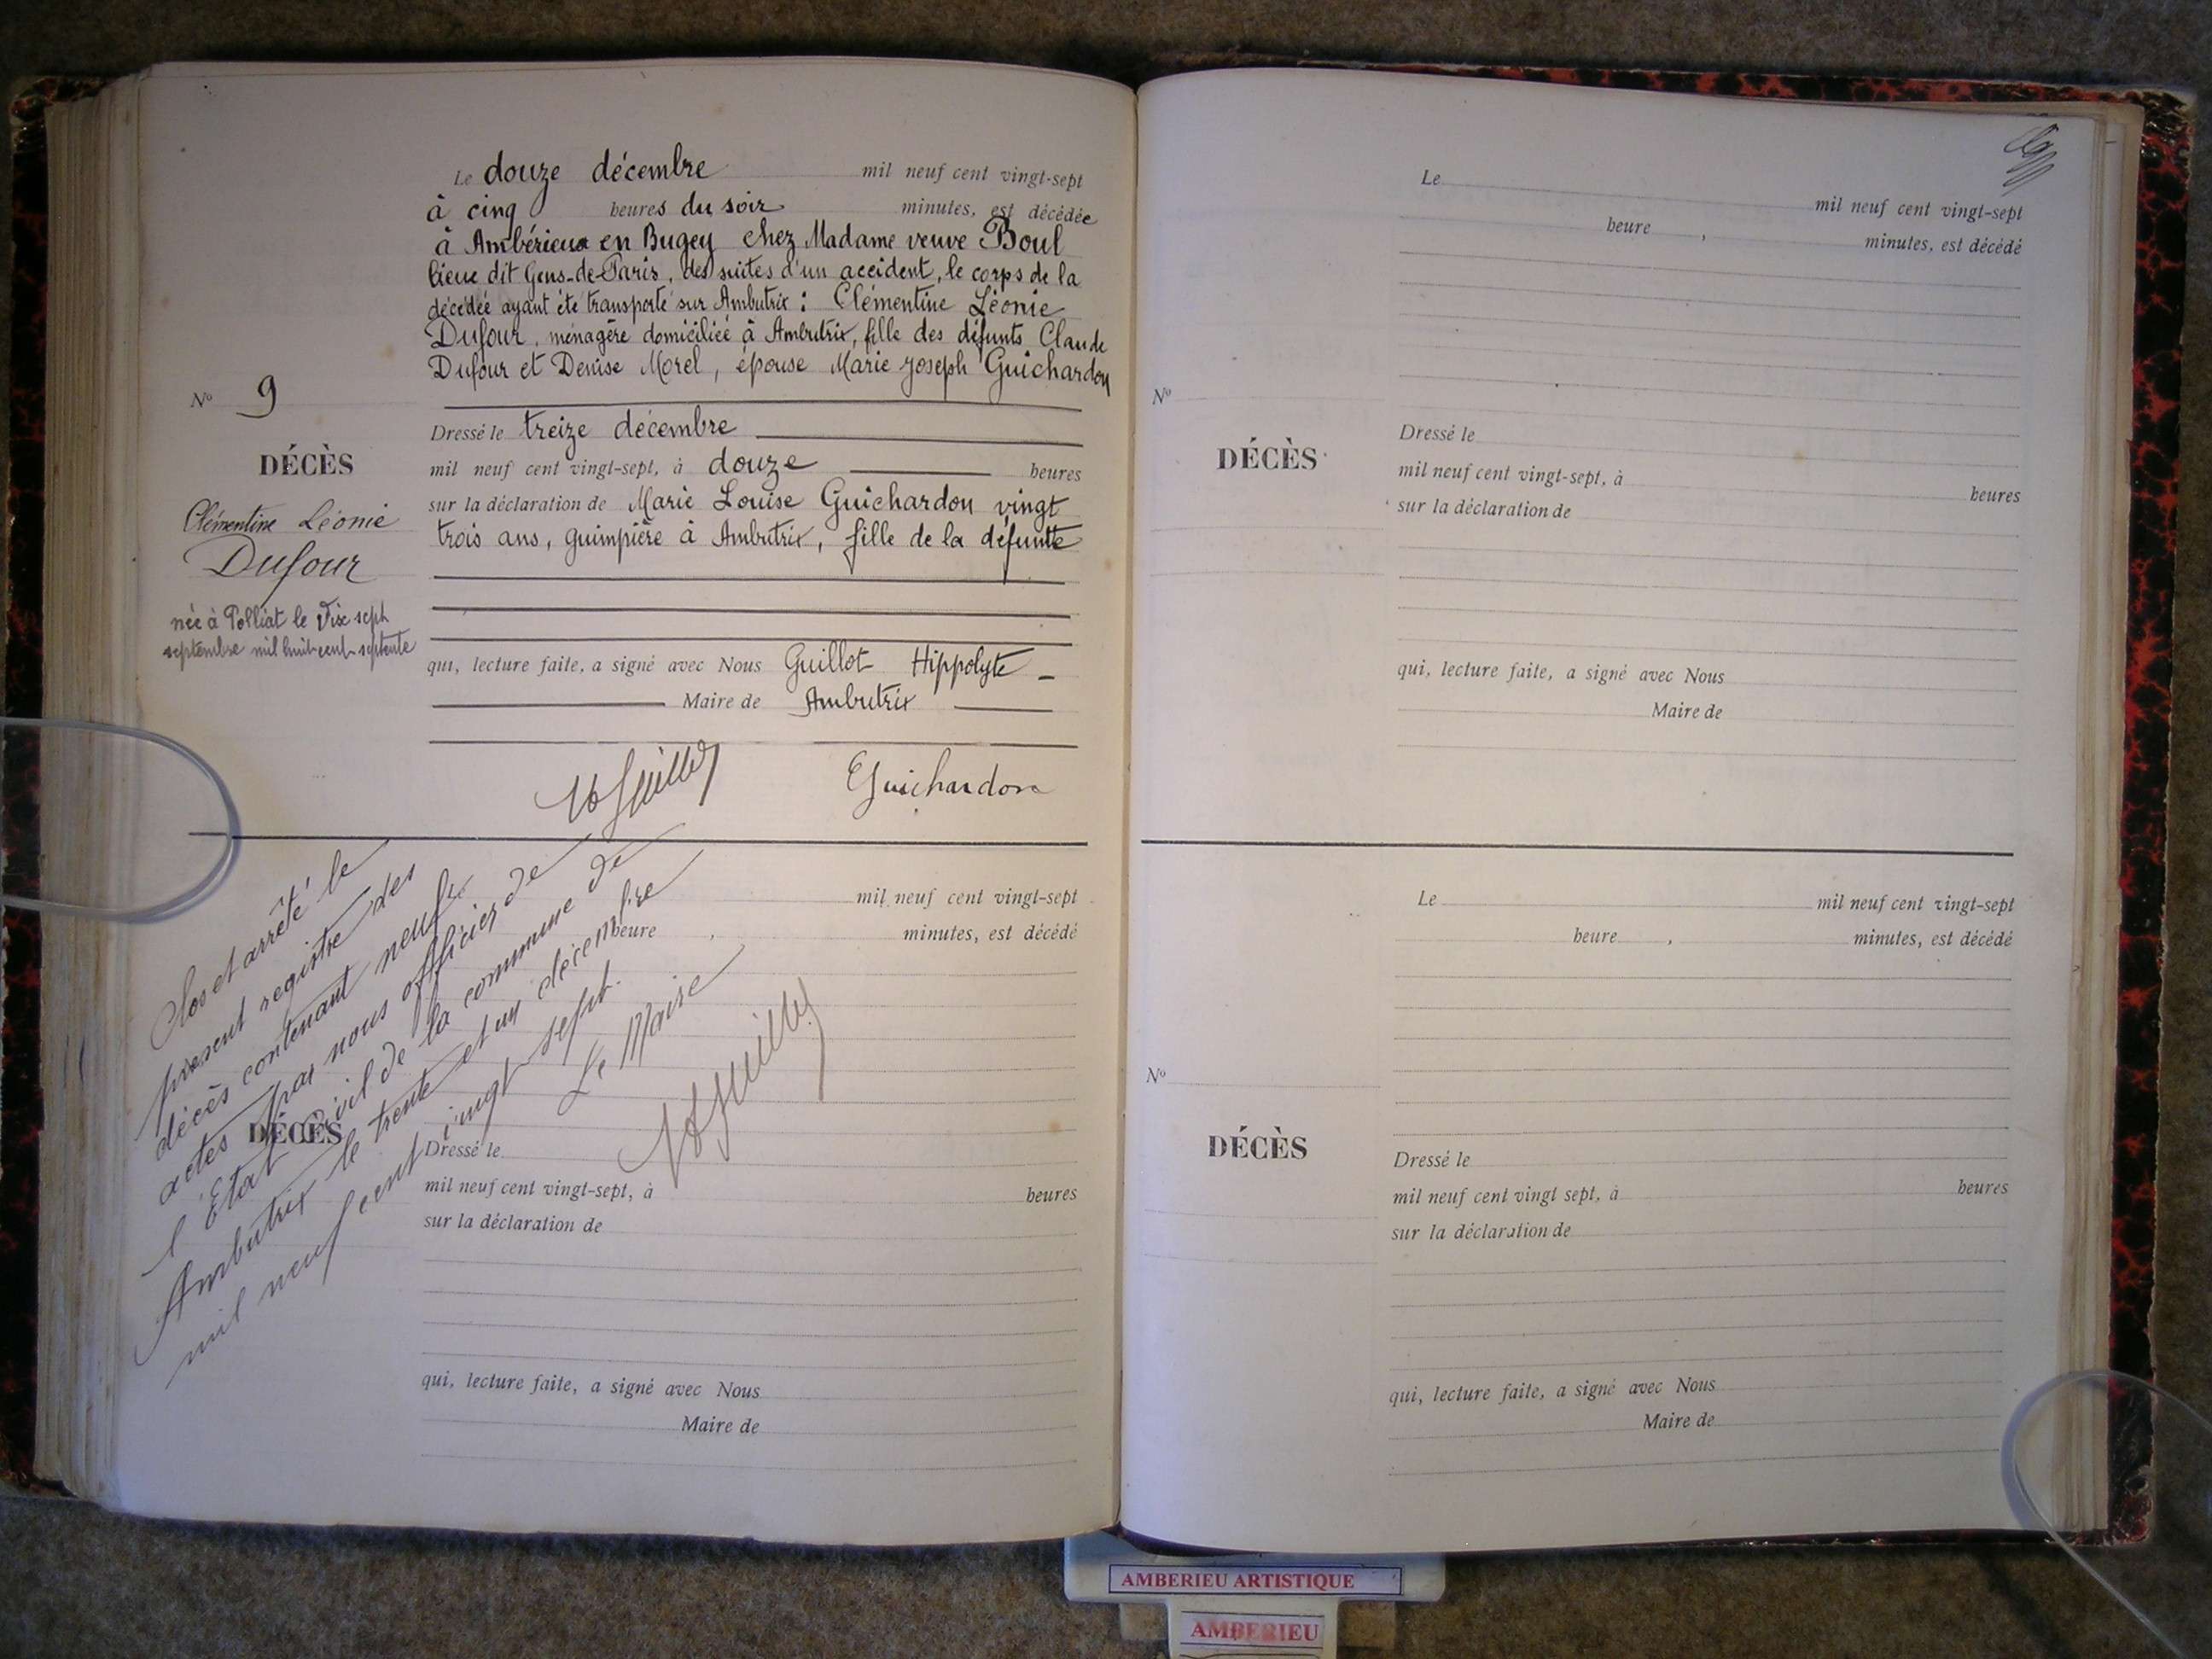 Le douze décembre mil neuf cent vingt-sept
à cinq heures du soir minutes, est décédée
à Ambérieux en Bugey chez Madame veuve Boul
lieu dit Gens-de-Paris, des suites d'un accident, le corps de la
décédée ayant été transporté sur Ambutrix : Clémentine Léonie
Dufour, ménagère domiciliée à Ambutrix, fille des défunts Claude
Dufour et Denise Morel, épouse Marie Joseph Guichardon
N° 9
DÉCÈS
Clémentine Léonie
Dufour
née à Polliat le dix sept
septembre mil huit cent septente
Dressé le treize décembre
mil neuf cent vingt-sept, à douze heures
sur la déclaration de Marie Louise Guichardon vingt
trois ans, guimpière à Ambutrix, fille de la défunte
qui, lecture faite, a signé avec Nous Guillot Hippolyte
Maire de Ambutrix
Guichardon
Clos et arrêté le
présent registre des
décès contenant neuf
actes par nous officier de
l'État Civil de la commune de
Ambutrix le trente et un décembre
mil neuf cent vingt sept.
Le Maire
mil neuf cent vingt-sept
heure , minutes, est décédé
DÉCÈS
Dressé le
mil neuf cent vingt-sept, à heures
sur la déclaration de
qui, lecture faite, a signé avec Nous
Maire de
Le mil neuf cent vingt-sept
heure , minutes, est décédé
N°
DÉCÈS
Dressé le
mil neuf cent vingt-sept, à heures
sur la déclaration de
qui, lecture faite, a signé avec Nous
Maire de
Le mil neuf cent vingt-sept
heure , minutes, est décédé
N°
DÉCÈS
Dressé le
mil neuf cent vingt sept, à heures
sur la déclaration de
qui, lecture faite, a signé avec Nous
Maire de
AMBERIEU ARTISTIQUE
AMBERIEU